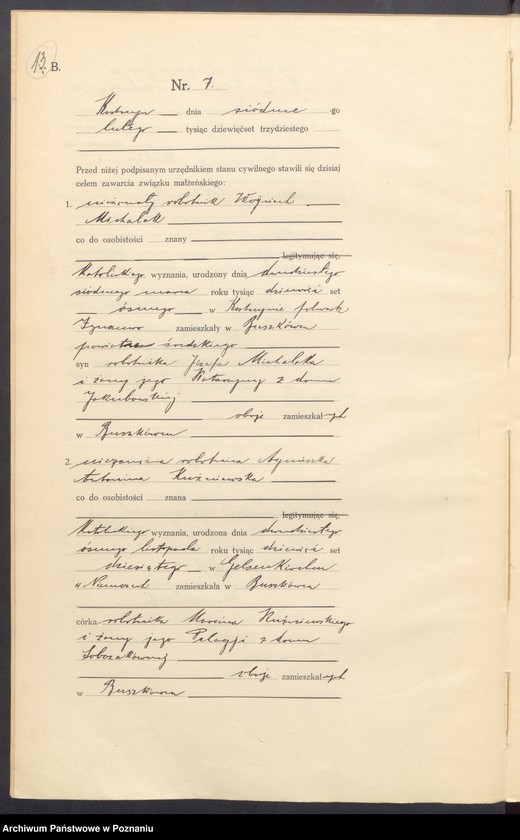 13. B.
Nr. 7.
dnia siódme go
lutego tysiąc dziewięćset trzydziestego
Przed niżej podpisanym urzędnikiem stanu cywilnego stawili się dzisiaj
celem zawarcia związku małżeńskiego:
1. nieżonaty robotnik Wojciech
Michalak
co do osobistości znany
legitymując się,
katolickiego wyznania, urodzony dnia dwudziestego
siódmego marca roku tysiąc dziewięć set
ósmego w Kostrzynie folwark
Ignacewo zamieszkały w Buszkówcu
powiatu średzkiego
syn robotnika Józefa Michalaka
i żony jego Katarzyny z domu
Jakubowskiej
oboje zamieszkałych
w Buszkówcu
2. niezamężna robotnica Agnieszka
Antonina Kuźniewska
co do osobistości znana
legitymując się,
katolickiego wyznania, urodzona dnia dwudziestego
ósmego listopada roku tysiąc dziewięć set
dziesiątego w Gelsenkirchen
w Niemczech zamieszkała w Buszkówcu
córka robotnika Marcina Kuźniewskiego
i żony jego Pelagji z domu
Sobczakównej
oboje zamieszkałych
w Buszkówcu
Archiwum Państwowe w Poznaniu